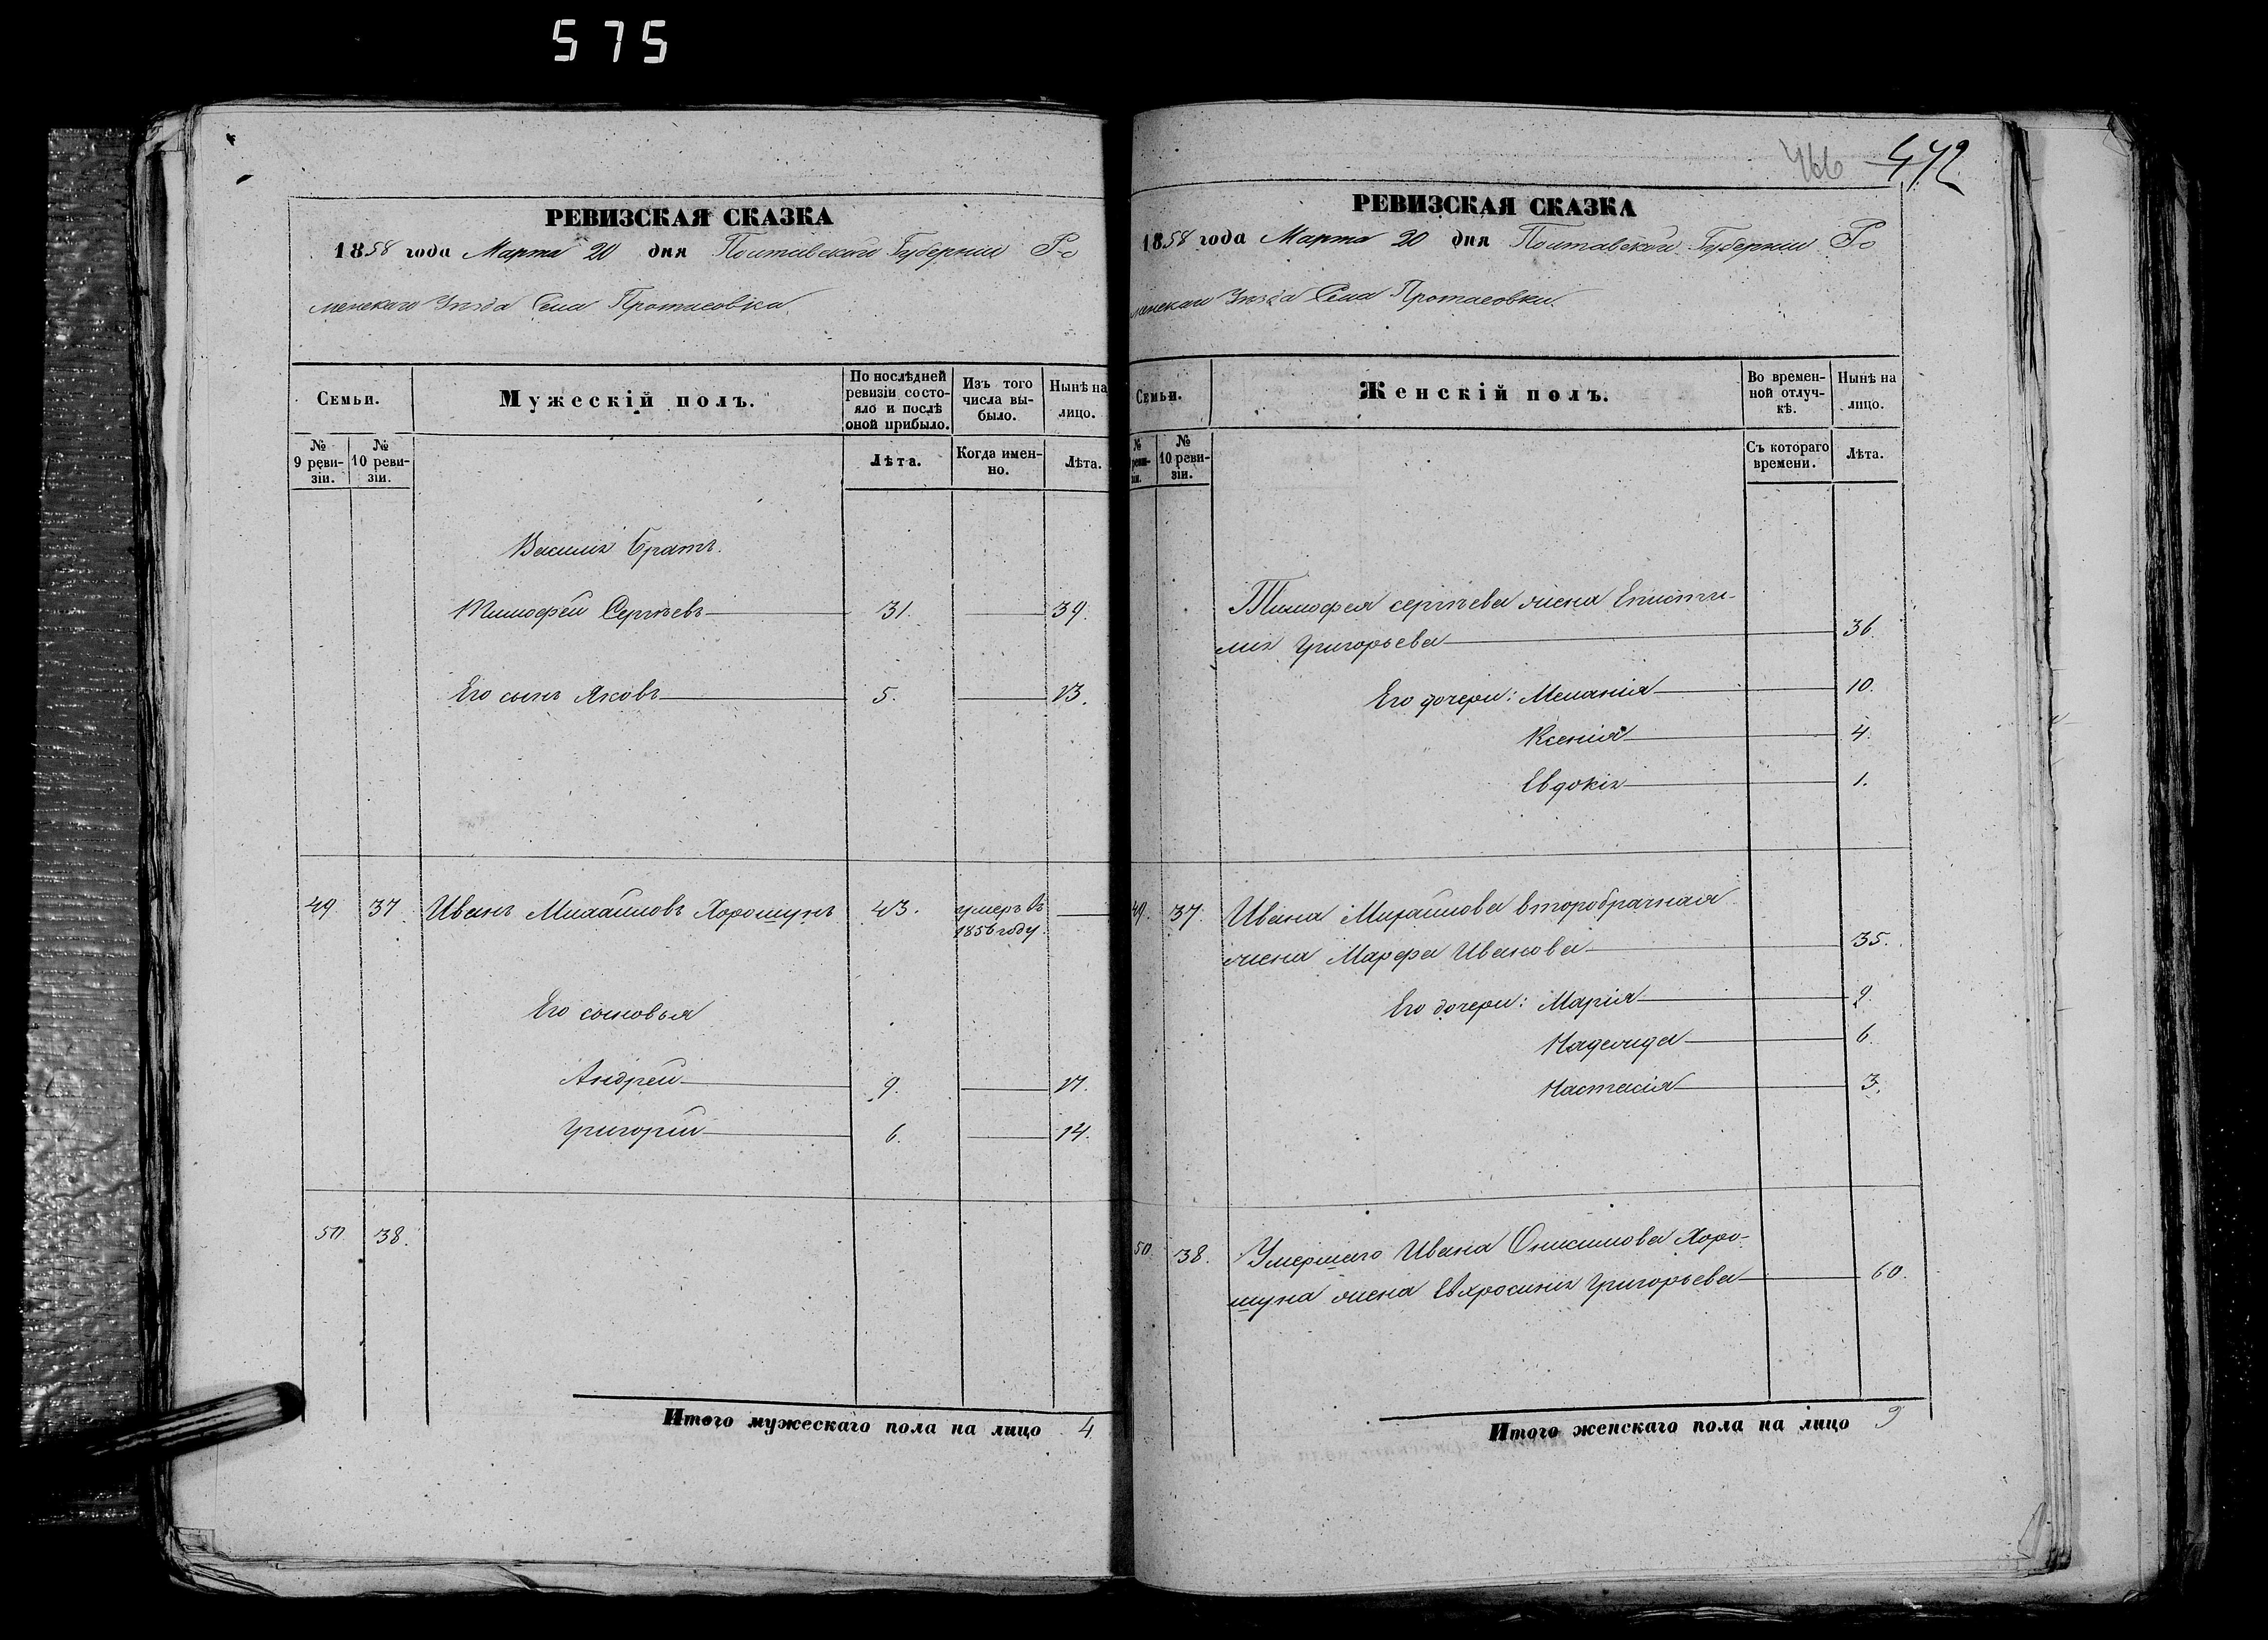 575
466 472
РЕВИЗСКАЯ СКАЗКА
1858 года Марта 20 дня Полтавской Губернии Ро
менскаго Уѣзда Села Протасовки.
Семьи.
Мужескій полъ.
По послѣдней ревизіи состояло и послѣ оной прибыло.
Изъ того числа выбыло.
Нынѣ на лицо.
№ 9 ревизіи.
№ 10 ревизіи.
Лѣта.
Когда именно.
Лѣта.
Василія братъ.
Тимофей Сергѣевъ 31. 39.
Его сынъ Яковъ 5. 13.
49 37. Иванъ Михайловъ Хорошунъ 43. умеръ въ
1856 году.
Его сыновья
Андрей 9. 17.
Григорій 6. 14.
50 38.
Итого мужескаго пола на лицо 4
РЕВИЗСКАЯ СКАЗКА
1858 года Марта 20 дня Полтавской Губерніи Ро
менскаго Уѣзда Села Протасовки.
Семьи.
Женскій полъ.
Во временной отлучкѣ.
Нынѣ на лицо.
№ реви- зіи.
№ 10 ревизіи.
Съ котораго времени.
Лѣта.
Тимофея сергѣева жена Еписти-
мія Григорьева 36.
Его дочери: Меланія 10.
Ксенія 4.
Евдокія 1.
49. 37. Ивана Михайлова второбрачная
жена Марфа Иванова 35.
Его дочери: Марія 9.
Надежда 6.
Настасія 3.
50. 38. Умершаго Ивана Онисимова Хоро-
шуна жена Евхросинія Григорьева 60.
Итого женскаго пола на лицо 9